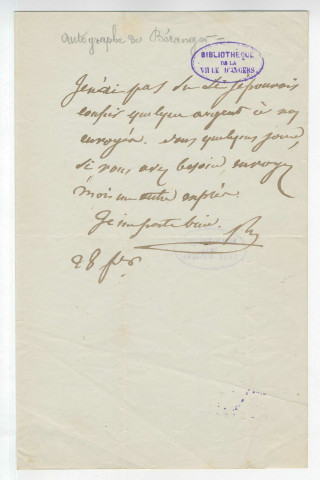 autographe de Béranger
BIBLIOTHÈQUE
DE LA
VILLE D'ANGERS
Je n'ai pas su si je pouvais
confier quelque argent à
envoyée. dans quelques jours,
si vous avez besoin envoyez
moi un autre
Je me porte bien.
28